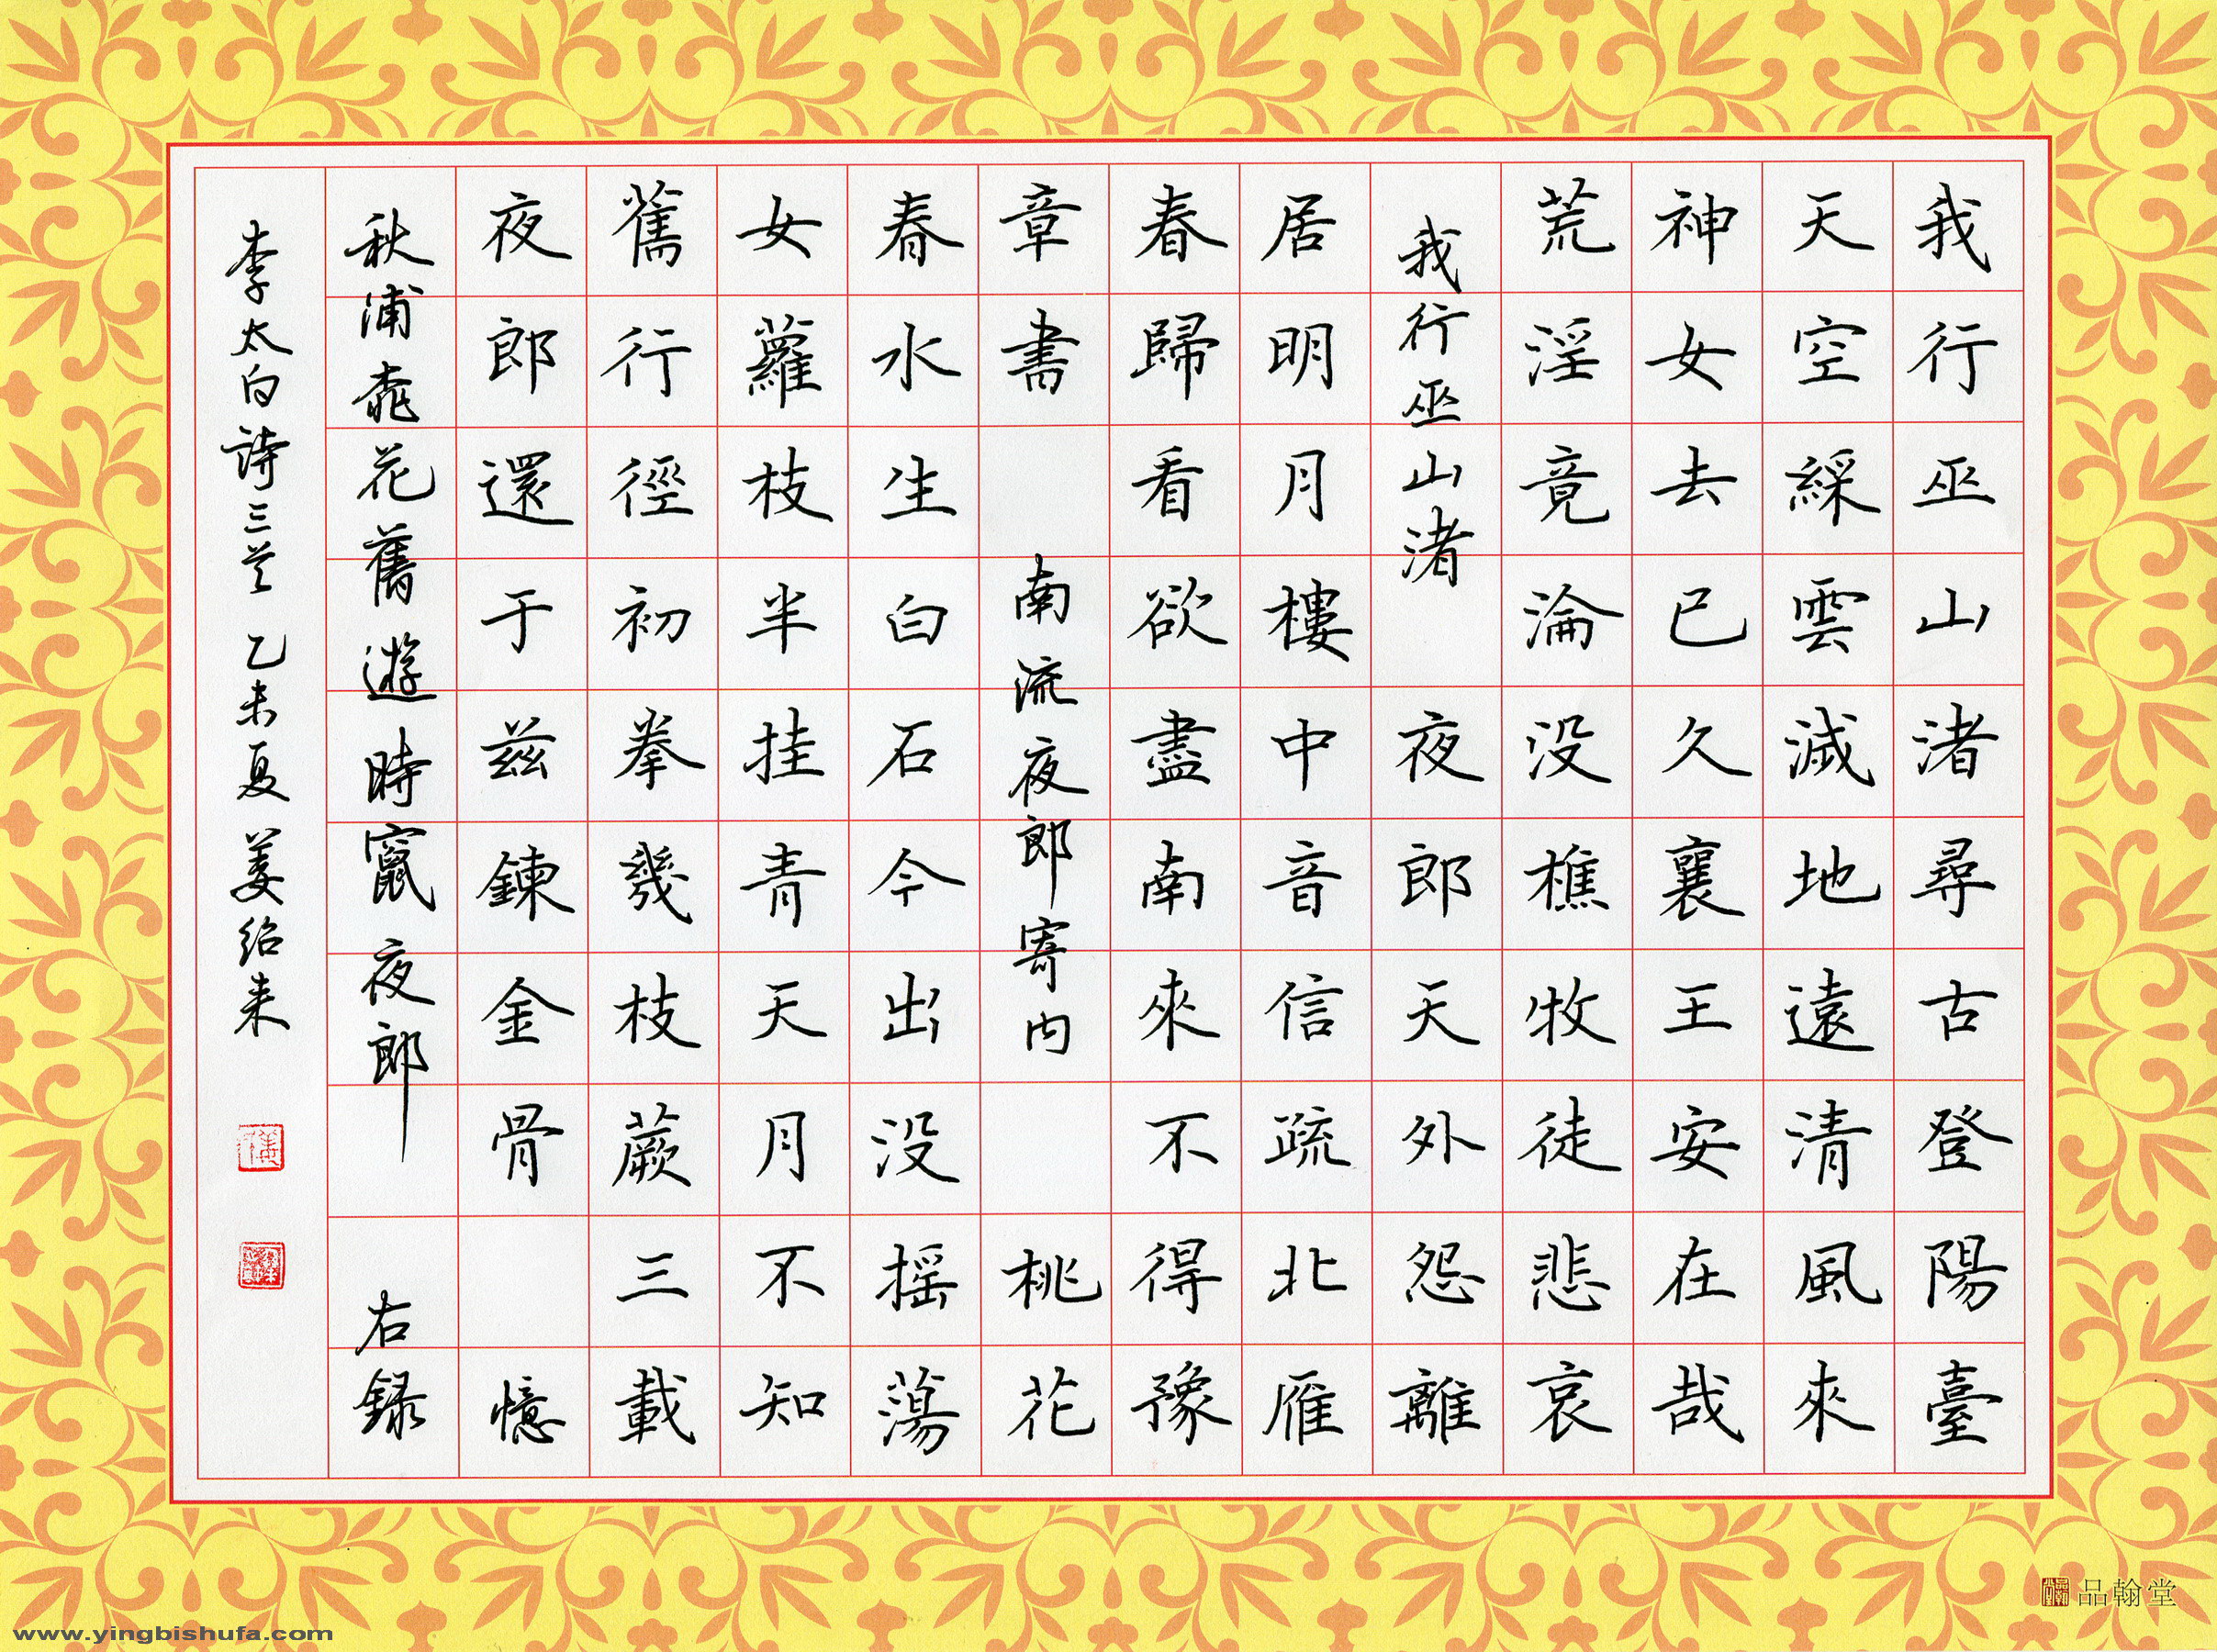 我行巫山渚尋古登陽臺
天空綵雲滅地遠清風來
神女去已久襄王安在哉
荒淫竟淪没樵牧徒悲哀
我行巫山渚 夜郎天外怨離
居明月樓中音信疏北雁
春歸看欲盡南來不得豫
章書 南流夜郎寄内 桃花
春水生白石今出没摇蕩
女蘿枝半挂青天月不知
舊行徑初拳幾枝蕨三載
夜郎還于兹鍊金骨 憶
秋浦桃花舊遊時竄夜郎 右録
李太白詩三首 乙未夏 姜绍来
品翰堂
www.yingbishufa.com